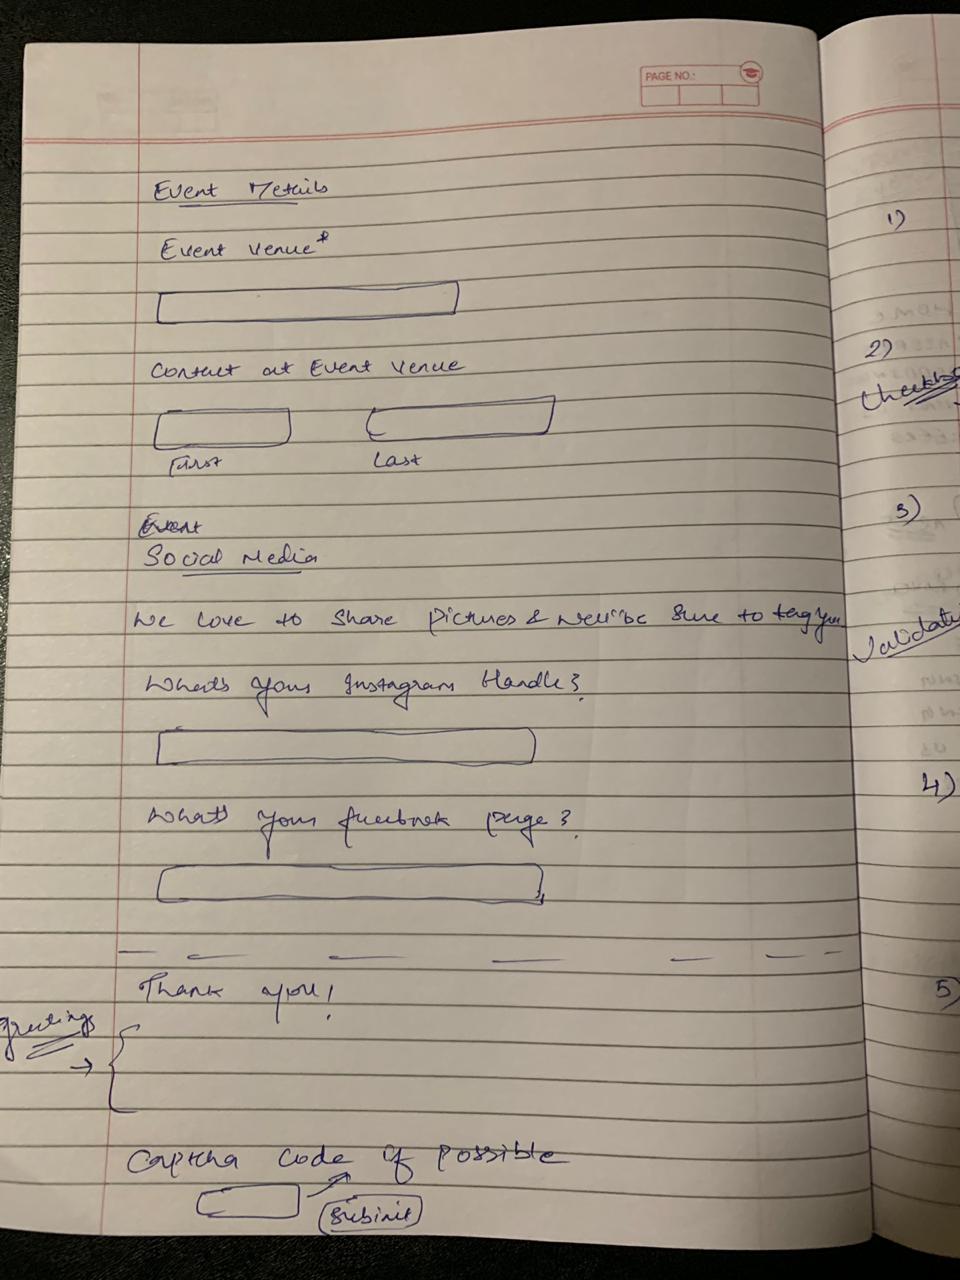 PAGE NO.:
Event Details
Event Venue*
Contact at Event Venue
First Last
Event
Social Media
We love to share pictures & we'll be sure to tag you
What's your Instagram Handle?
What's your facebook page?
Thank you!
greetings
Captcha code if possible
Submit
1)
2)
3)
4)
5)